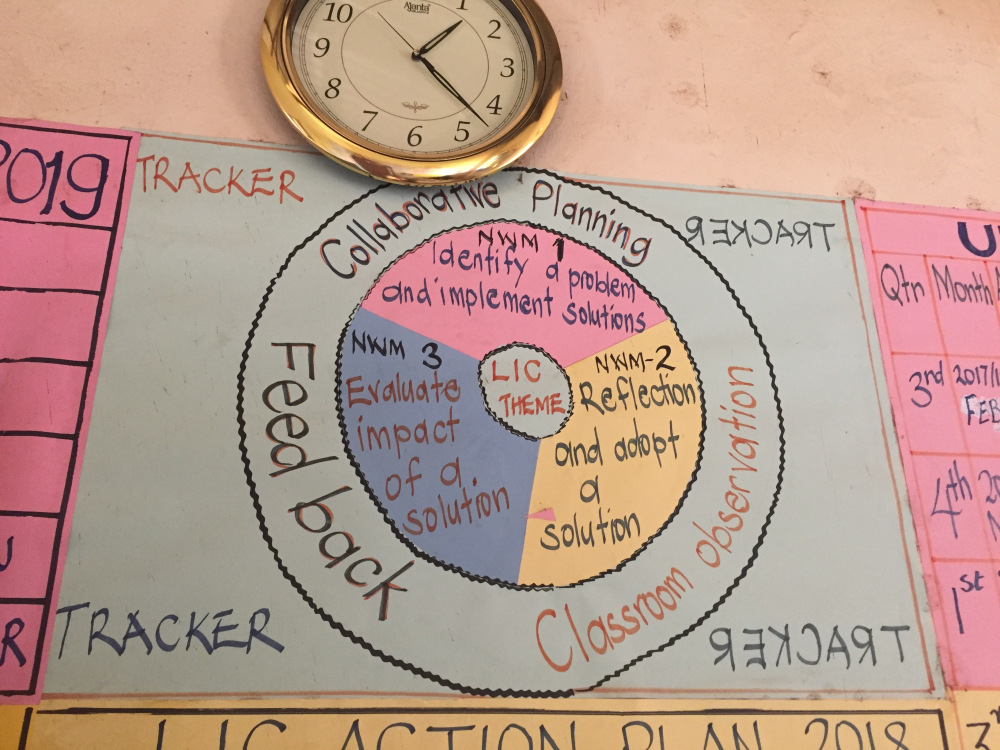 Ajanta
10
1
2
9
3
8
4
7
6
5
2019
TRACKER
Collaborative Planning
TRACKER
NWM 1
Identify a problem
and implement solutions
Qtr Month
NWM 3
Evaluate
impact
of a
solution
LIC
THEME
NWM-2
Reflection
and adopt
a
solution
3rd 2017/
FEB
4th
1st
Feed back
Classroom observation
R
TRACKER
TRACKER
LIC ACTION PLAN 2018